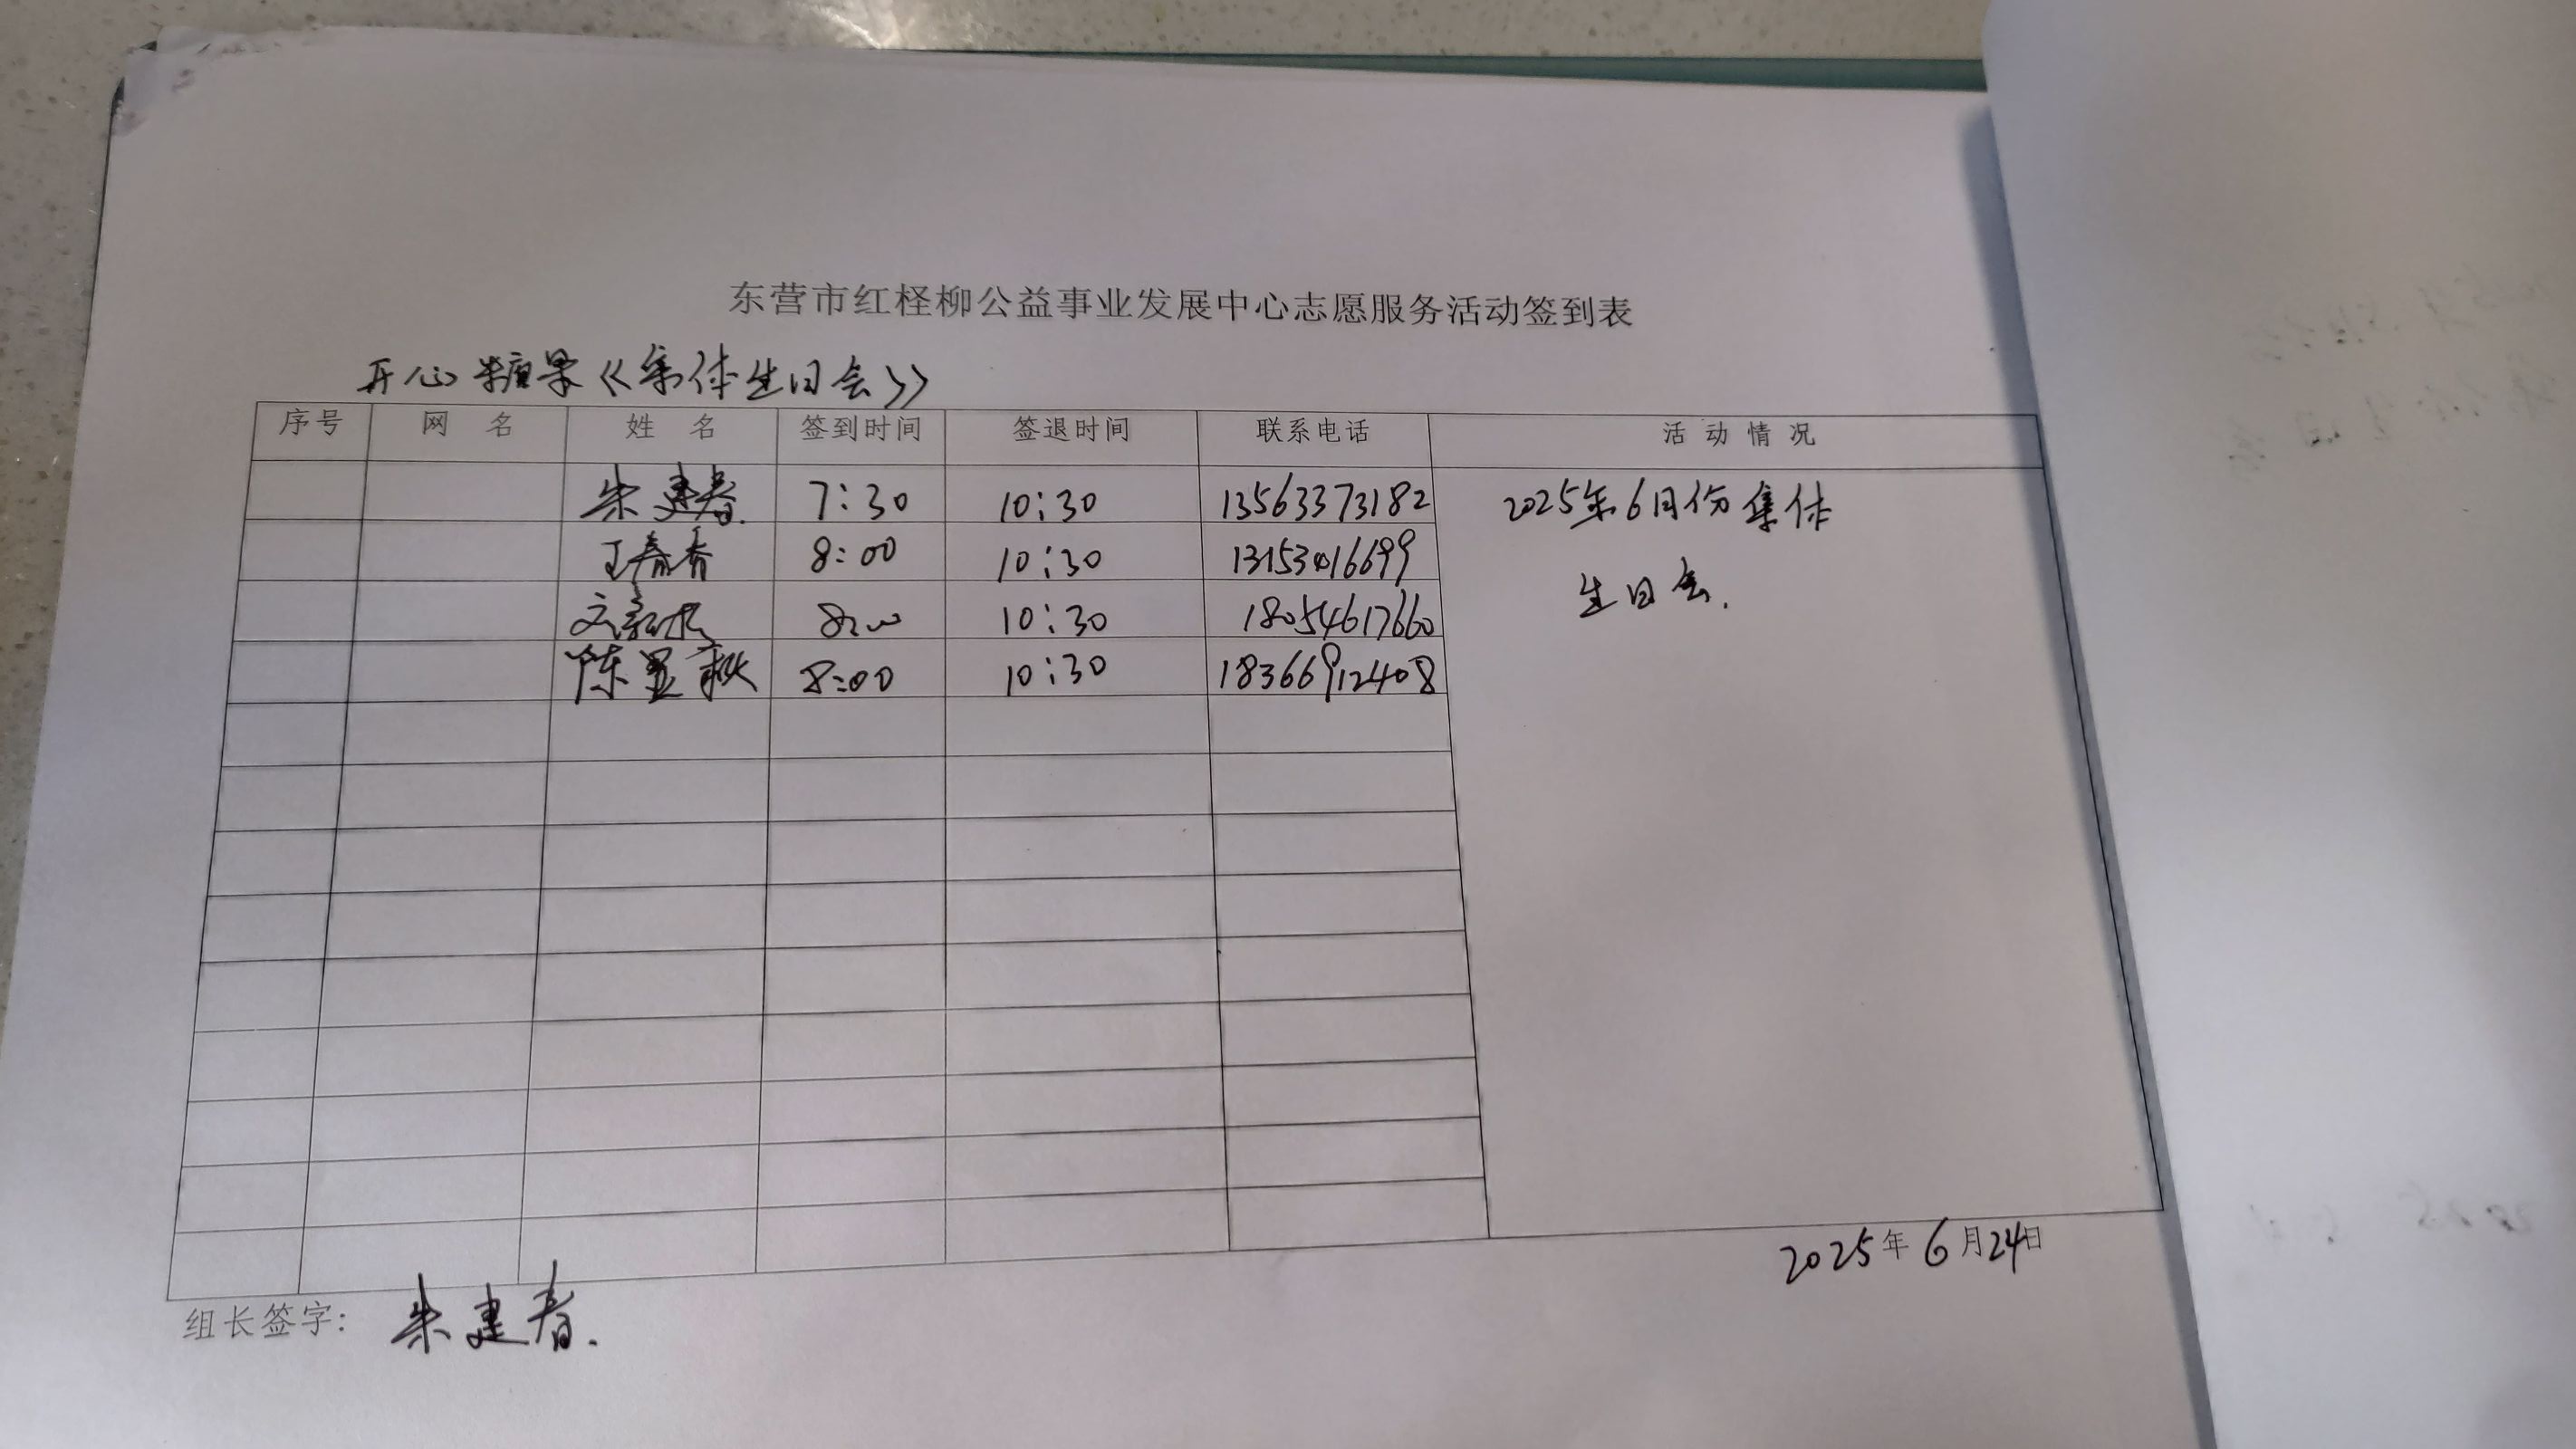 东营市红柽柳公益事业发展中心志愿服务活动签到表
开心糖果《集体生日会》
序号 网 名 姓 名 签到时间 签退时间 联系电话 活 动 情 况
朱建春 7:30 10:30 13563373182 2025年6月份集体
王春香 8:00 10:30 13153416699
生日会.
8:00 10:30 18054617660
陈显秋 8:00 10:30 18366912408
2025年6月24日
组长签字: 朱建春.